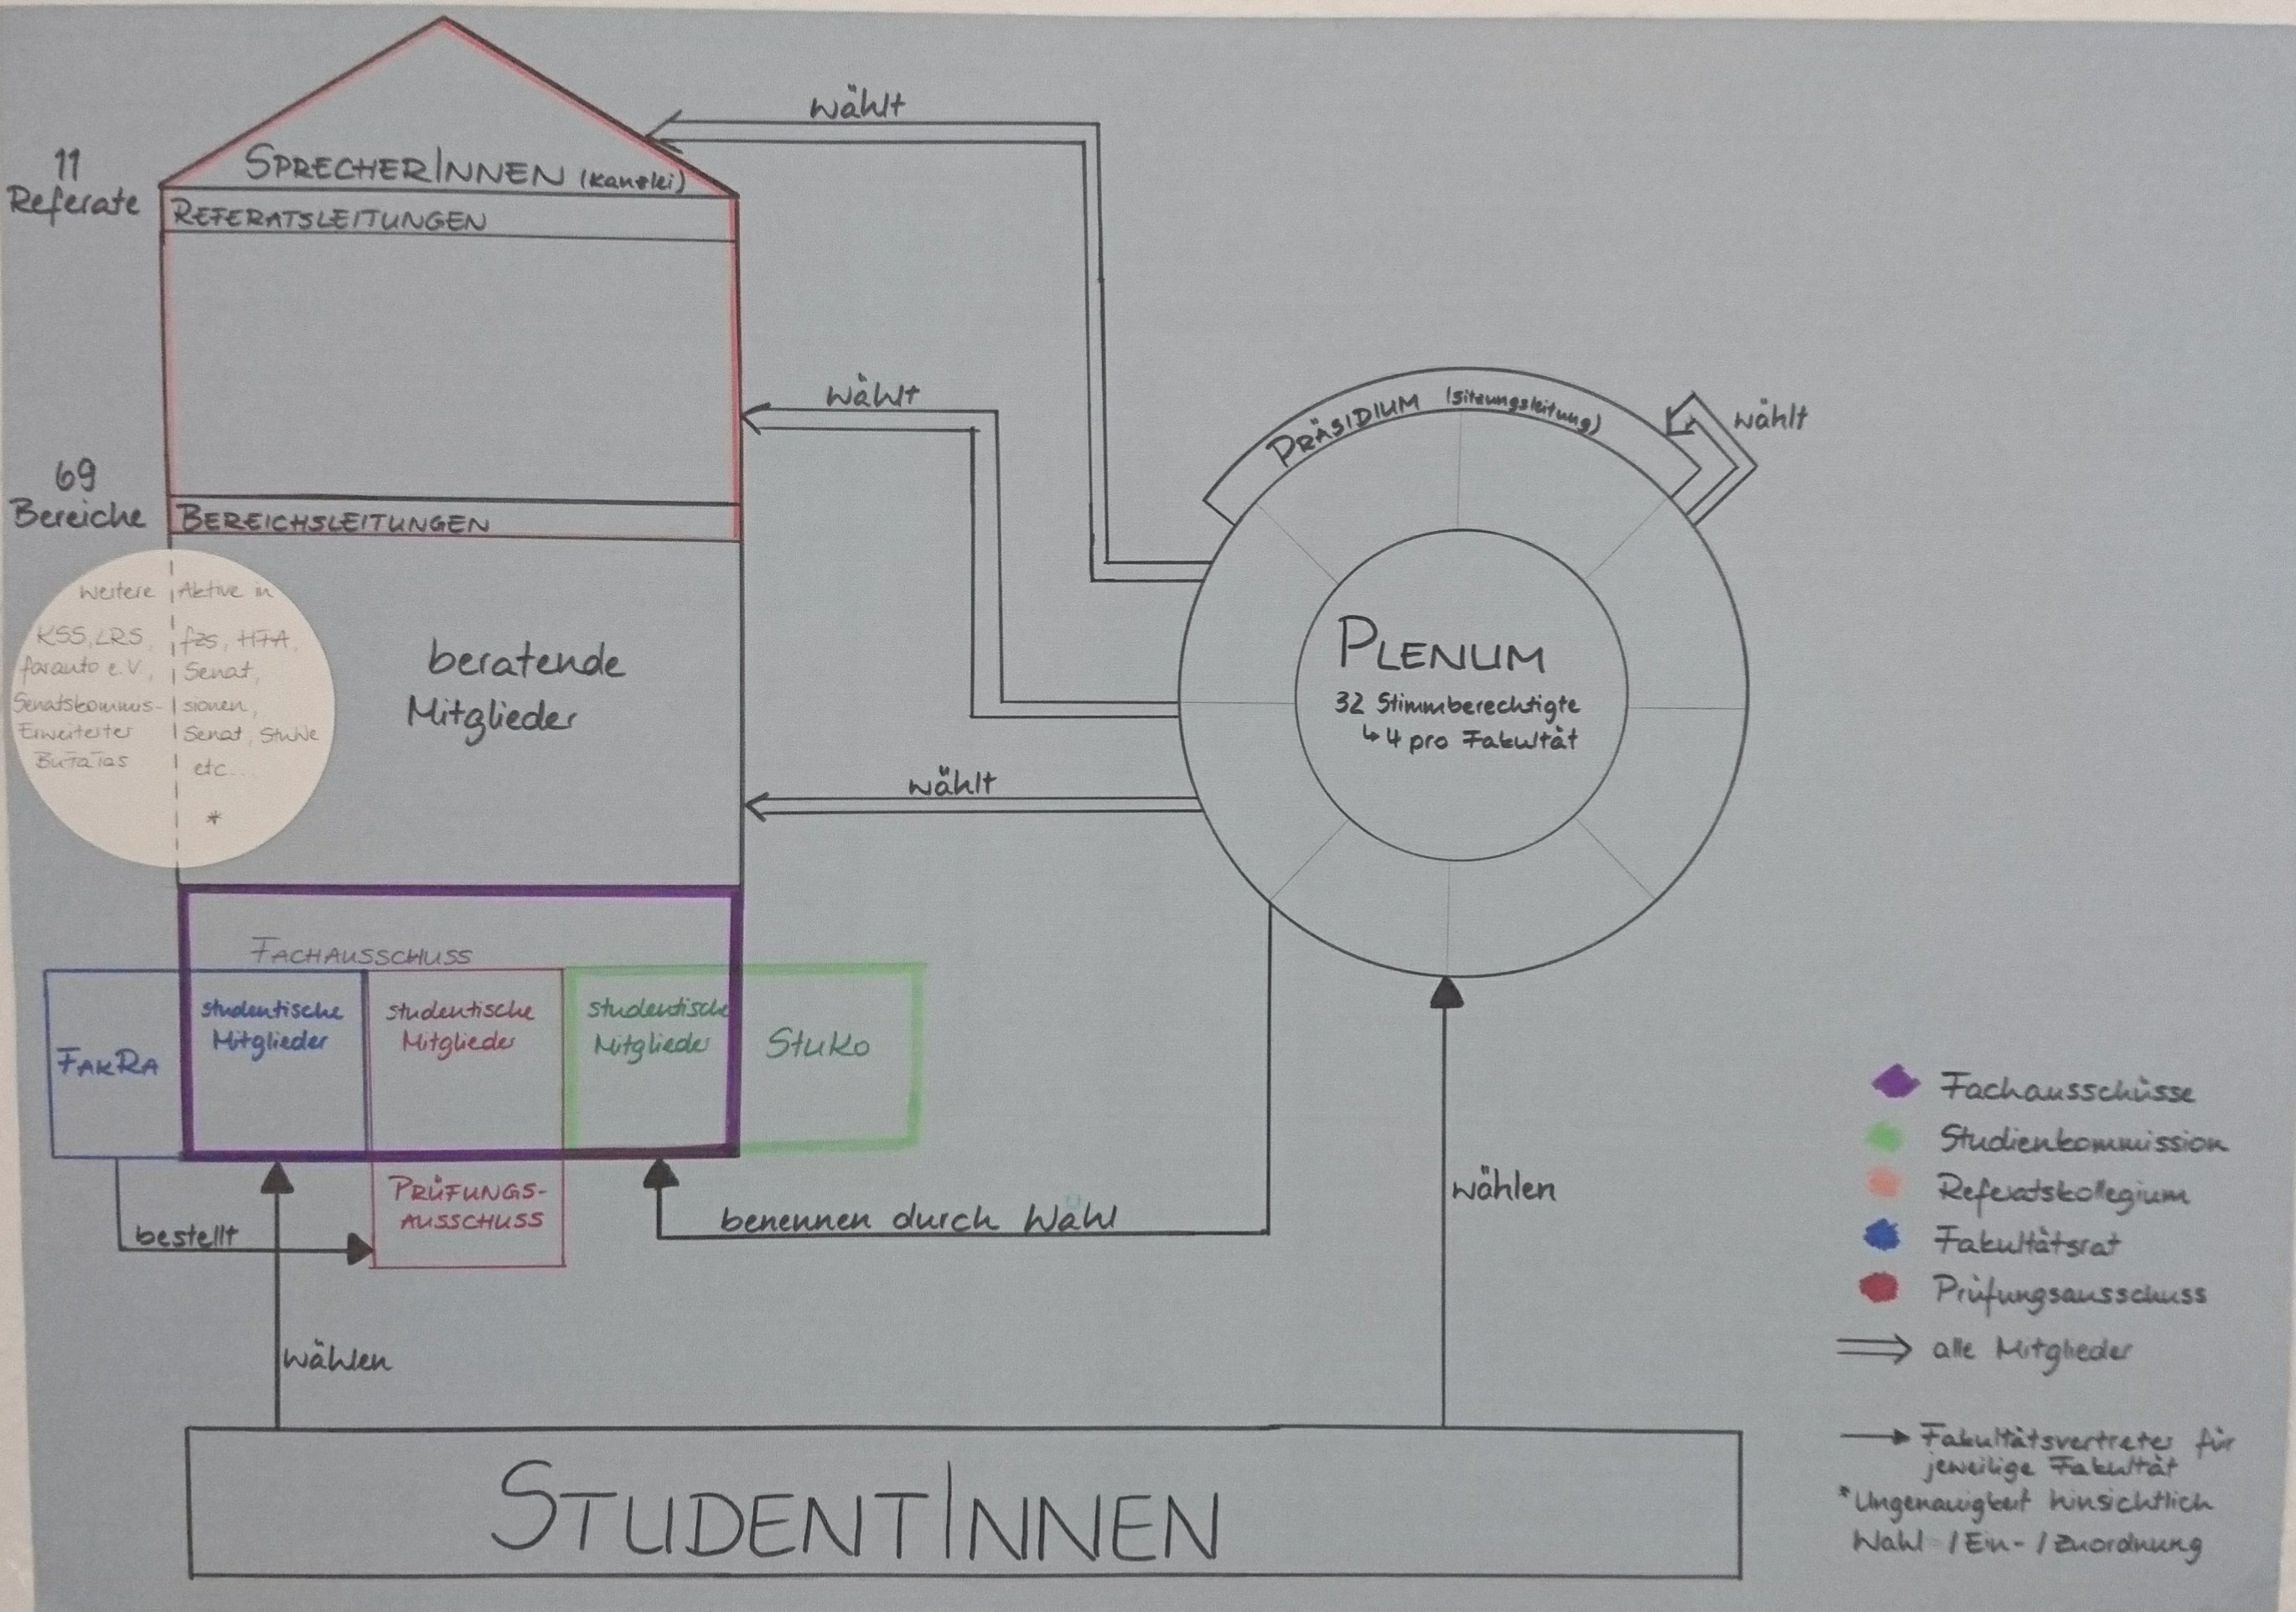 wählt
11
Referate
SPRECHERINNEN (Kanzlei)
REFERATSLEITUNGEN
wählt
PRÄSIDIUM (Sitzungsleitung)
wählt
69
Bereiche
BEREICHSLEITUNGEN
weitere Aktive in
KSS, LRS, fzs, HTA,
faranto e.V., Senat,
Senatskommis- sionen,
Erweiterter Senat, StuWe
BuTaTas etc...
*
beratende
Mitglieder
PLENUM
32 Stimmberechtigte
↳ 4 pro Fakultät
wählt
FACHAUSSCHUSS
FAKRA
studentische
Mitglieder
studentische
Mitglieder
studentische
Mitglieder
StuKo
PRÜFUNGS-
AUSSCHUSS
bestellt
benennen durch Wahl
wählen
wählen
STUDENTINNEN
Fachausschüsse
Studienkommission
Referatskollegium
Fakultätsrat
Prüfungsausschuss
alle Mitglieder
Fakultätsvertreter für
jeweilige Fakultät
*Ungenauigkeit hinsichtlich
Wahl-/Ein-/Zuordnung